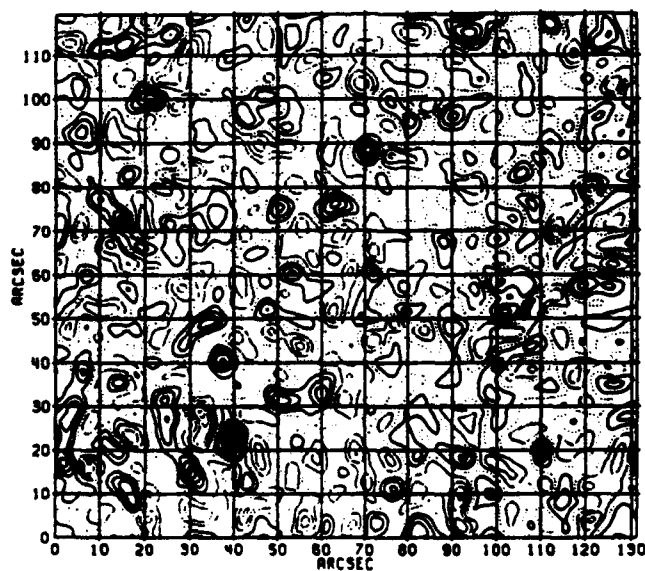 110
100
90
80
70
60
50
40
30
20
10
0
ARCSEC
0 10 20 30 40 50 60 70 80 90 100 110 120 130
ARCSEC